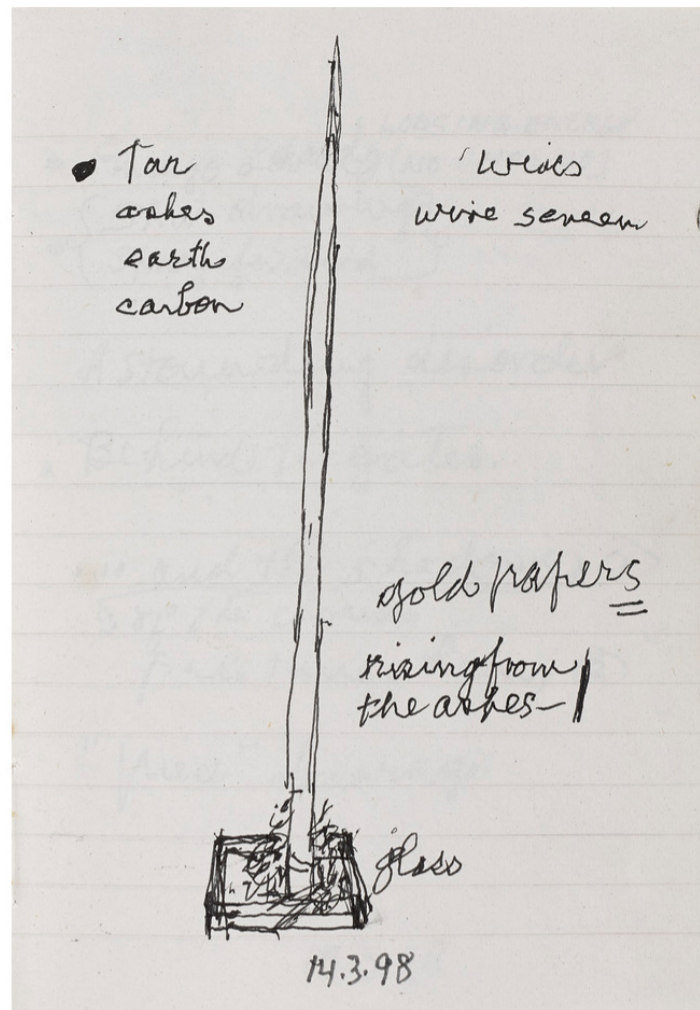 Tar
ashes
earth
carbon
wires
wire screen
gold papers
rising from
the ashes–
glass
14.3.98